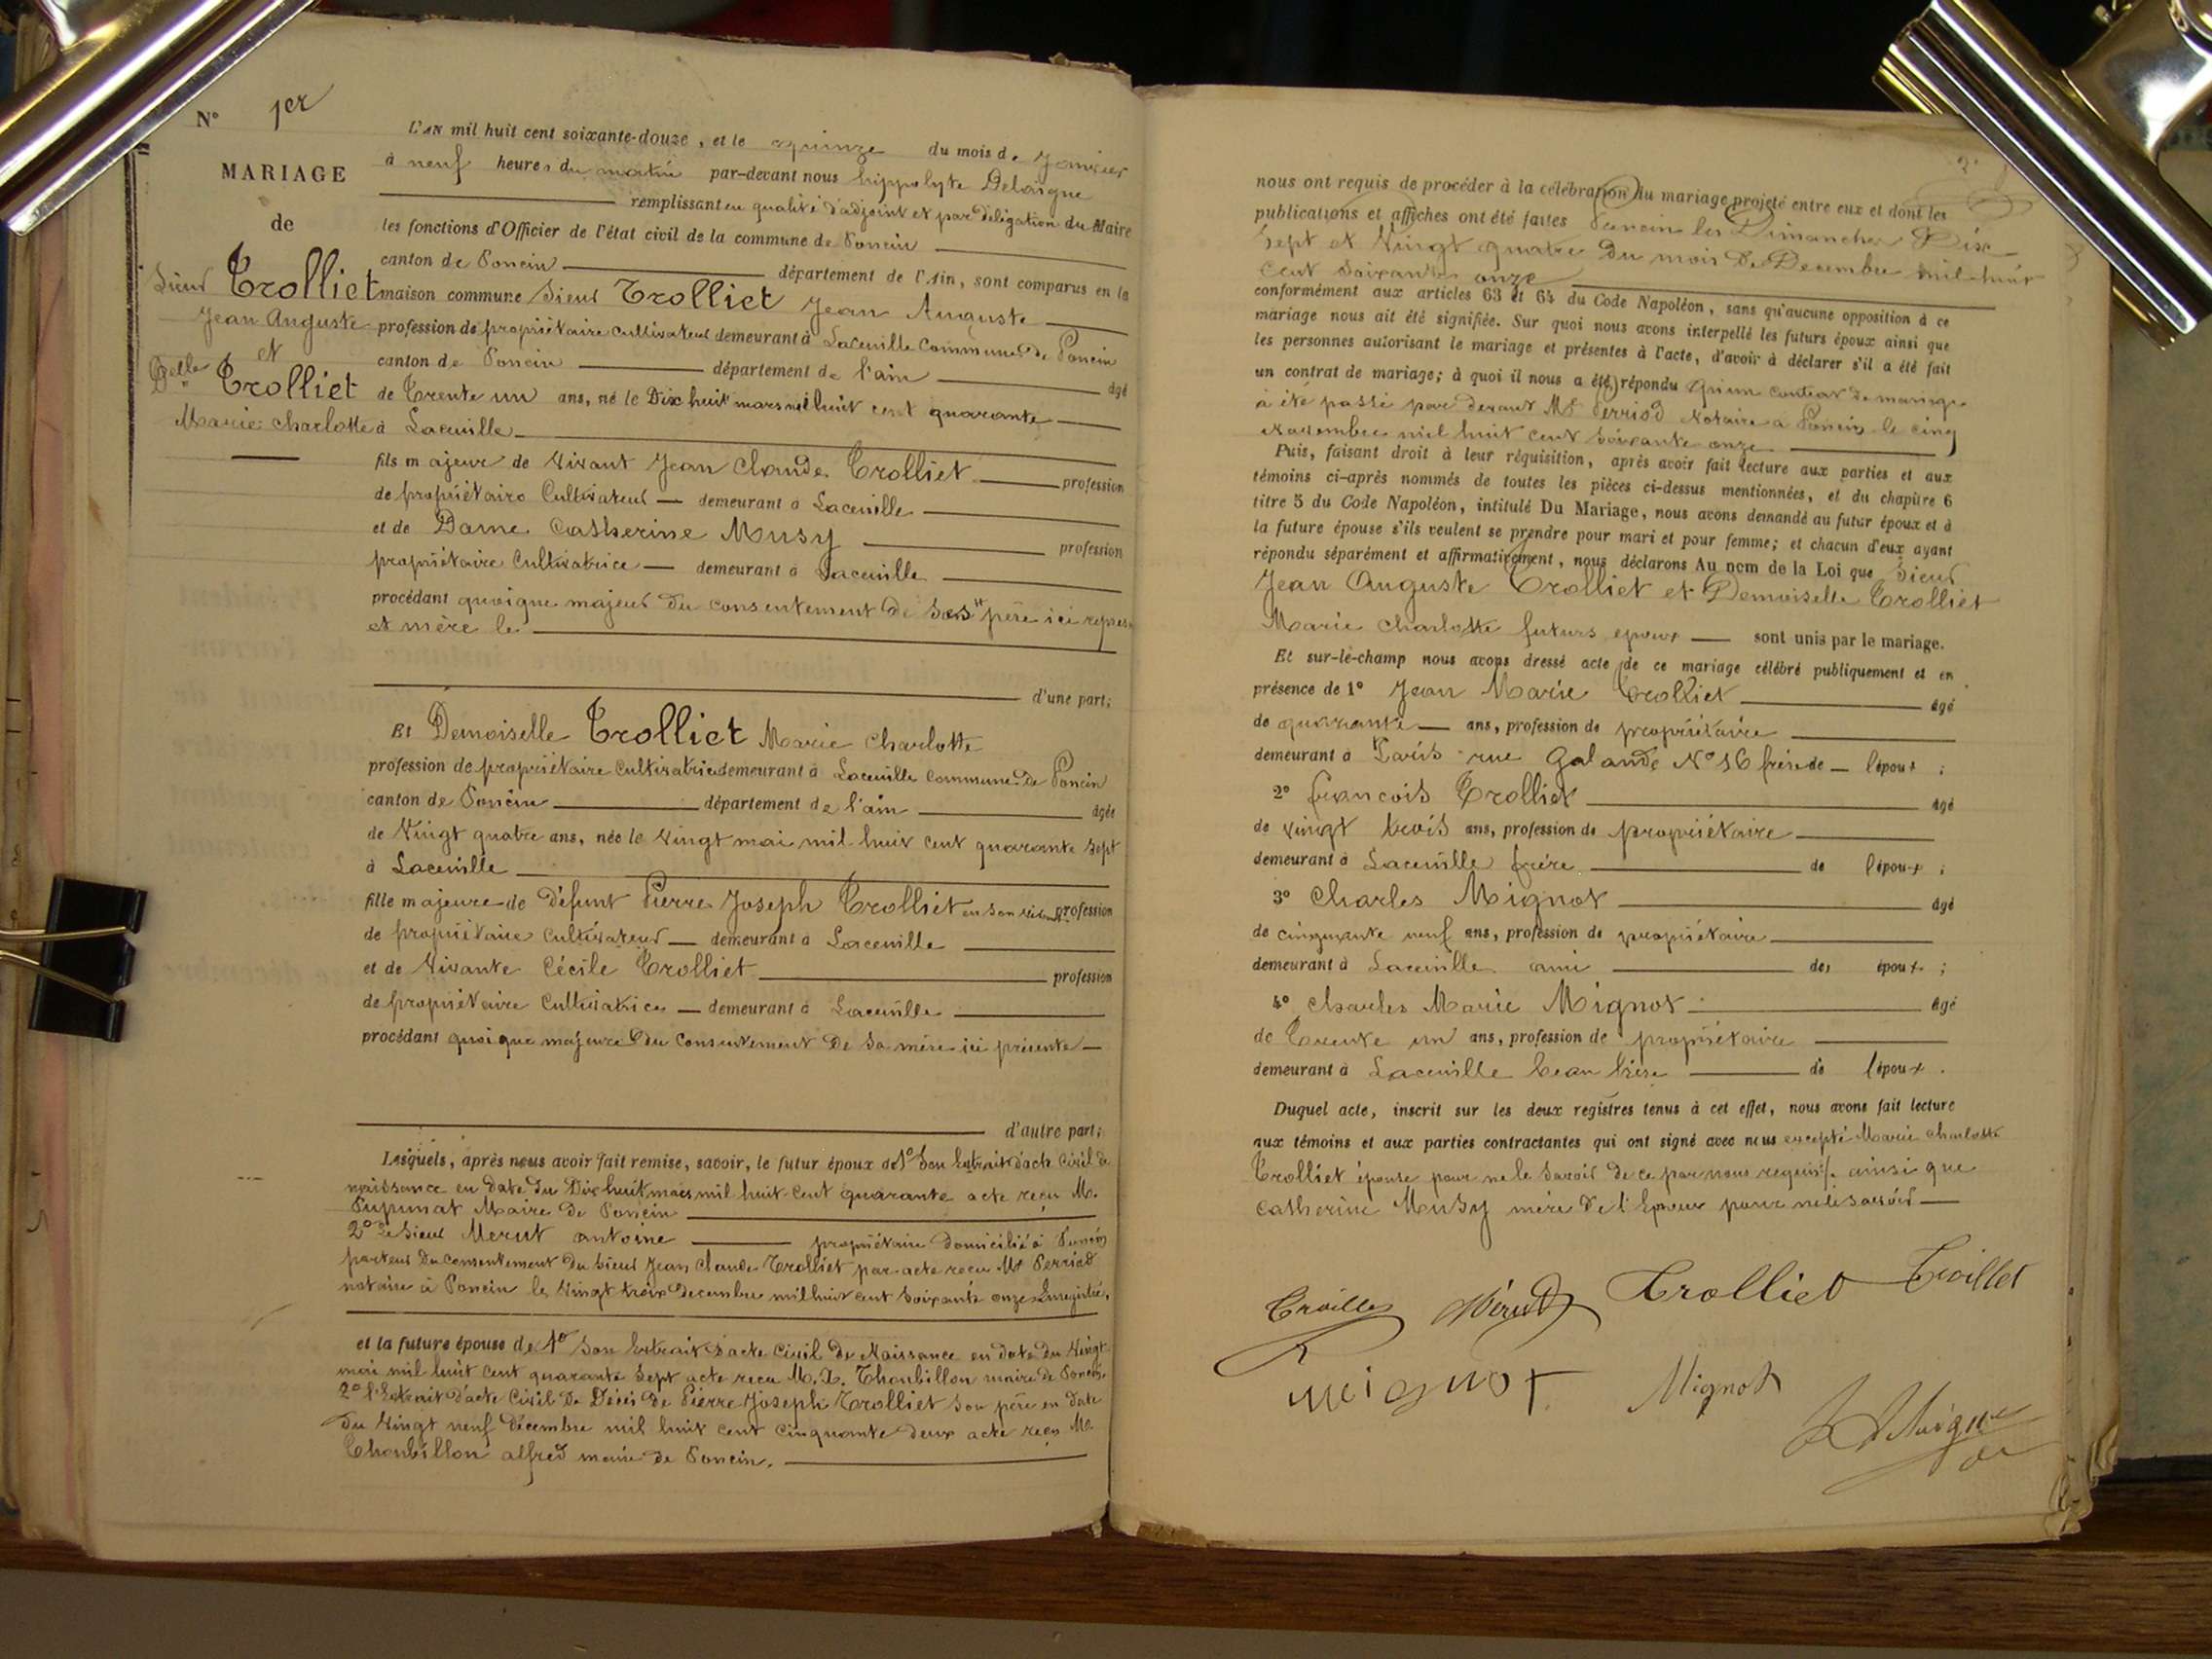 N° 1er
MARIAGE
de
Sieur Trolliet
Jean Auguste
et
Delle Trolliet
Marie Charlotte
L'AN mil huit cent soixante-douze, et le quinze du mois de Janvier
à neuf heures du matin par-devant nous hippolyte Delaigue
remplissant en qualité d'adjoint et par déligation du Maire
les fonctions d'Officier de l'état civil de la commune de Poncin
canton de Poncin département de l'Ain, sont comparus en la
maison commune Sieur Trolliet Jean Auguste
profession de propriétaire cultivateur demeurant à Lacuille commune de Poncin
canton de Poncin département de l'ain âgé
de Trente un ans, né le Dix huit mars mil huit cent quarante
à Lacuille
fils majeur de Vivant Jean Claude Trolliet profession
de propriétaire Cultivateur demeurant à Lacuille
et de Dame Catherine Musy profession
propriétaire Cultivatrice demeurant à Lacuille
procédant quoique majeur du consentement de ses père ici
et mère le
d'une part;
Et Demoiselle Trolliet Marie Charlotte
profession de propriétaire cultivatrice demeurant à Lacuille commune de Poncin
canton de Poncin département de l'ain âgée
de Vingt quatre ans, née le Vingt mai mil huit cent quarante sept
à Lacuille
fille majeure de Défunt Pierre Joseph Trolliet en son vivant profession
de propriétaire Cultivateur demeurant à Lacuille
et de Vivante Cécile Trolliet profession
de propriétaire Cultivatrice demeurant à Lacuille
procédant quoique majeure du consentement de sa mère ici présente
d'autre part;
Lesquels, après nous avoir fait remise, savoir, le futur époux de 1° Son Extrait d'acte Civil de
naissance en date du Dix huit mars mil huit cent quarante acte reçu M.
Maire de Poncin
2° le Sieur Merut antoine propriétaire domicilié à Poncin
porteur du consentement du Sieur Jean Claude Trolliet par acte reçu Me Perriod
notaire à Poncin le Vingt trois Decembre mil huit cent soixante onze Enregistré,
et la future épouse de 1° Son Extrait d'acte Civil de Naissance en date du Vingt
mai mil huit cent quarante sept acte reçu M. Thoubillon maire de Poncin
2° l'Extrait d'acte Civil de Décès de Pierre Joseph Trolliet son père en date
du Vingt neuf décembre mil huit cent cinquante deux acte reçu M.
Thoubillon alfred maire de Poncin.
2
nous ont requis de procéder à la célébration du mariage projeté entre eux et dont les
publications et affiches ont été faites Poncin les Dimanches Dix
sept et Vingt quatre du mois de Decembre mil huit
cent soixante onze
conformément aux articles 63 et 64 du Code Napoléon, sans qu'aucune opposition à ce
mariage nous ait été signifiée. Sur quoi nous avons interpellé les futurs époux ainsi que
les personnes autorisant le mariage et présentes à l'acte, d'avoir à déclarer s'il a été fait
un contrat de mariage; à quoi il nous a été répondu qu'un contrat de mariage
a été passé par devant Me Perriod Notaire à Poncin le cinq
Novembre mil huit cent soixante onze
Puis, faisant droit à leur réquisition, après avoir fait lecture aux parties et aux
témoins ci-après nommés de toutes les pièces ci-dessus mentionnées, et du chapitre 6
titre 5 du Code Napoléon, intitulé Du Mariage, nous avons demandé au futur époux et à
la future épouse s'ils veulent se prendre pour mari et pour femme; et chacun d'eux ayant
répondu séparément et affirmativement, nous déclarons Au nom de la Loi que Sieur
Jean Auguste Trolliet et Demoiselle Trolliet
Marie Charlotte futurs epoux sont unis par le mariage.
Et sur-le-champ nous avons dressé acte de ce mariage célébré publiquement et en
présence de 1° Jean Marie Trolliet âgé
de quarante ans, profession de propriétaire
demeurant à Paris rue Galande N° 16 frère de l'époux ;
2° francois Trolliet âgé
de vingt trois ans, profession de propriétaire
demeurant à Lacuille frère de l'époux ;
3° Charles Mignot âgé
de cinquante neuf ans, profession de propriétaire
demeurant à Lacuille ami des époux ;
4° Charles Marie Mignot âgé
de Trente un ans, profession de propriétaire
demeurant à Lacuille beau frère de l'époux.
Duquel acte, inscrit sur les deux registres tenus à cet effet, nous avons fait lecture
aux témoins et aux parties contractantes qui ont signé avec nous excepté Marie Charlotte
Trolliet épouse pour ne le savoir de ce par nous requis ainsi que
Catherine Musy mère de l'Epoux pour ne le savoir
Mérut Trolliet Troillet
Mignot Mignot